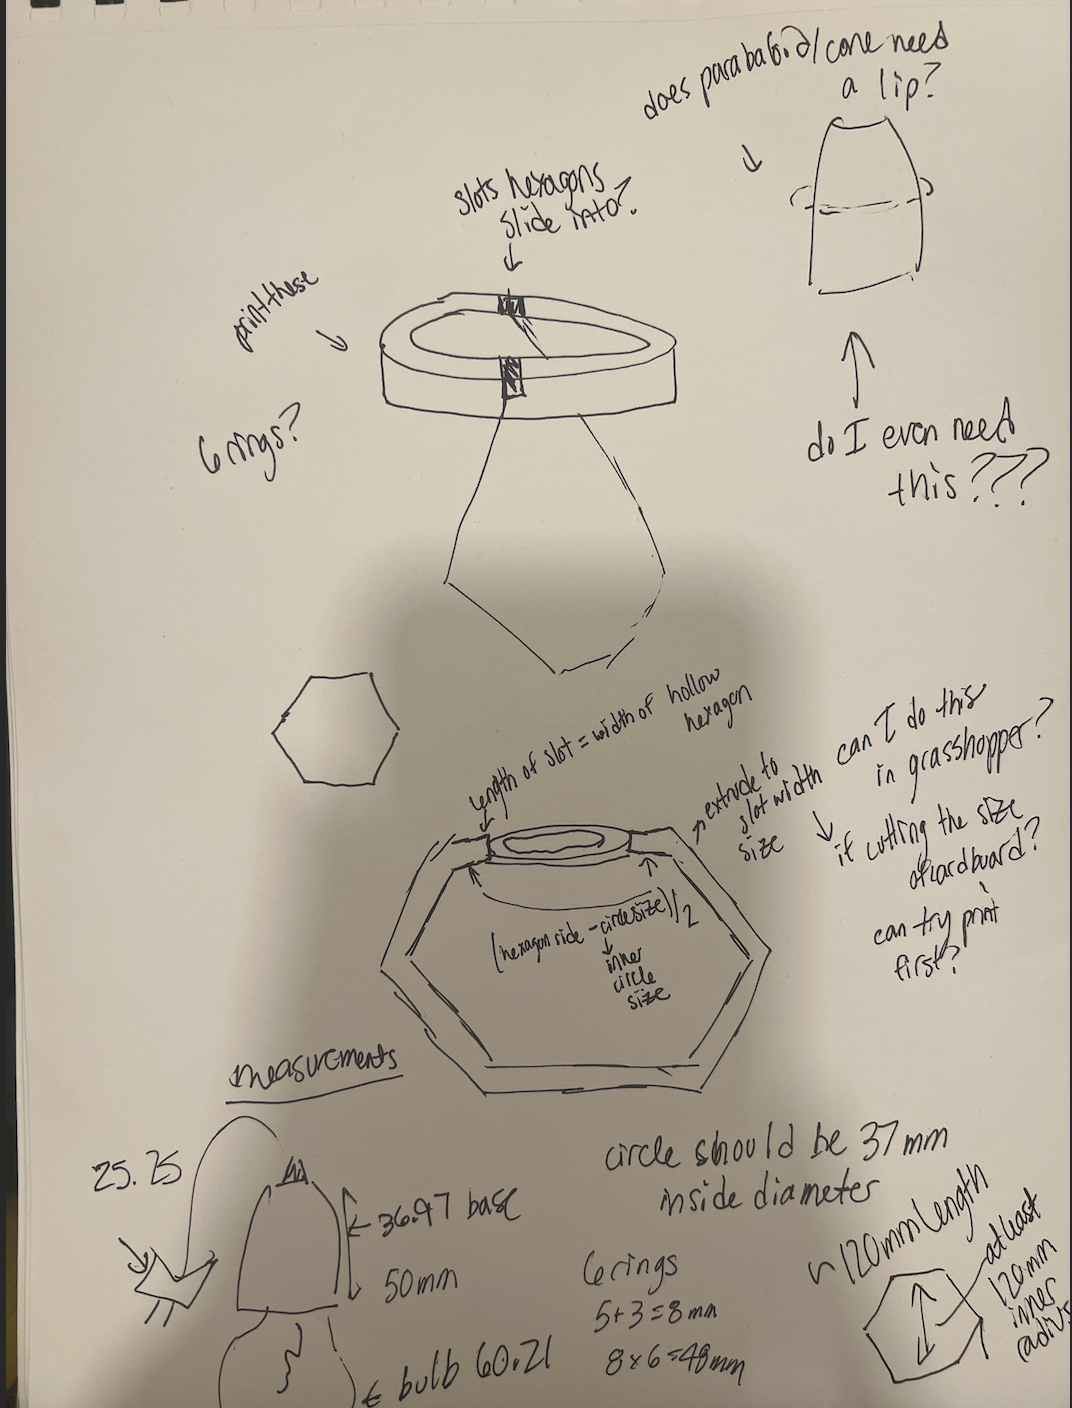 does parabaloid/cone need
a lip?
slots hexagons
slide into?
print these
6 rings?
do I even need
this???
length of slot = width of hollow
hexagon
extrude to
slot width
size
can I do this
in grasshopper?
if cutting the size
of cardboard?
can try print
first?
(hexagon side - circle size)/2
inner
circle
size
measurements
25.25
36.97 base
50mm
bulb 60.21
circle should be 37mm
inside diameter
6 rings
5+3=8mm
8x6=48mm
~120mm length
at least
120mm
inner
radius